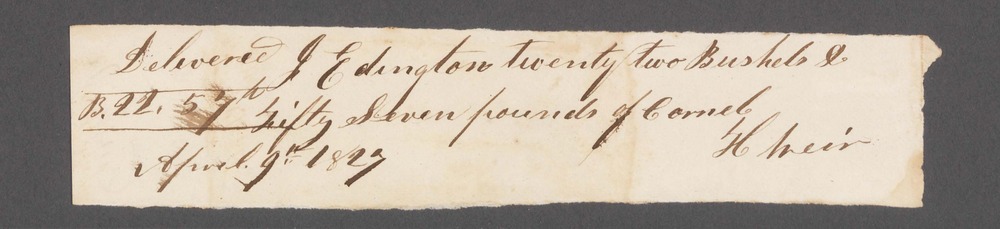 Delivered J Edington twenty two Bushels &
B. 22. 57 lb Fifty Seven pounds of Corn
H Weir
April. 9th 1827